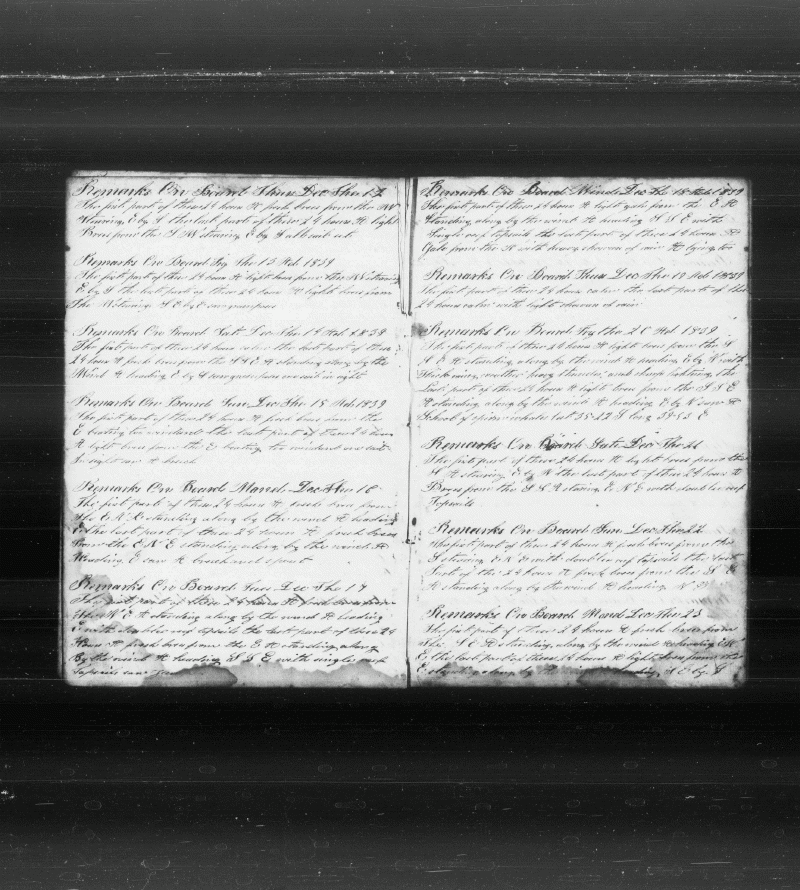 Remarks On Board Thur Dec the 12
The first part of these 24 hours A fresh brees from the NW
Stearing E by S the last part of these 24 hours A light
Brees from the S W stearing E by S all sail out
Remarks On Board Fry the 13 Feb 1839
The first part of these 24 hours A light brees from the NW stearing
E by S the last part of these 24 hours A light brees from
The W stearing S E by E
Remarks On Board Sat Dec the 14 Feb 1839
The first part of these 24 hours calm the last part of these
24 hours A fresh brees from the S S E A standing along by the
Wind A heading E by S in sight
Remarks On Board Sun Dec the 15 Feb 1839
The first part of these 24 hours A fresh brees from the
E beating to windard the last part of these 24 hours
A light brees from the E beating to windard one sail
In sight
Remarks On Board Mand Dec the 16
The first part of these 24 hours A fresh brees from
The E N E standing along by the wind A heading
the last part of these 24 hours A fresh brees
from the E N E standing along by the wind A
Heading E saw A
Remarks On Board Tues Dec the 17
The first part of these 24 hours A fresh brees from
The N E A standing along by the wind A heading
E with doubler reep topsails the last part of these 24
Hours A fresh brees from the E A standing along
By the wind A heading S S E with single reep
Topsails
Remarks On Board Wends Dec the 18 Feb 1839
The first part of these 24 hours A light gale from the E A
Standing along by the wind A heading S S E with
Single reep topsails the last part of these 24 hours A
Gale from the N with heavy showers of rain A lying too
Remarks On Board Thur Dec the 19 Feb 1839
The first part of these 24 hours calm the last part of these
24 hours calm with light showers of rain
Remarks On Board Fry the 20 Feb 1839
The first part of these 24 hours A light brees from the N
N E A standing along by the wind A heading E by N with
heavy thunder and sharp lightning the
Last part of these 24 hours A light brees from the S S E
A standing along by the wind A heading E by N saw A
School of sperm whales lat 35-42 S Long 39-53 E
Remarks On Board Sat Dec the 21
The first part of these 24 hours A light brees from the
S A stearing E by N the last part of these 24 hours A
Brees from the S S E stearing E N E with double reep
Topsails
Remarks On Board Sun Dec the 22
The first part of these 24 hours A fresh brees from the
S stearing E N E with double reep topsails the last
Part of these 24 hours A fresh brees from the N E
A standing along by the wind A heading N
Remarks On Board Mand Dec the 23
The first part of these 24 hours A fresh brees from
the S E A standing along by the wind A heading
E the last part of these 24 hours A light brees from the
E standing along by the wind A heading S E by S